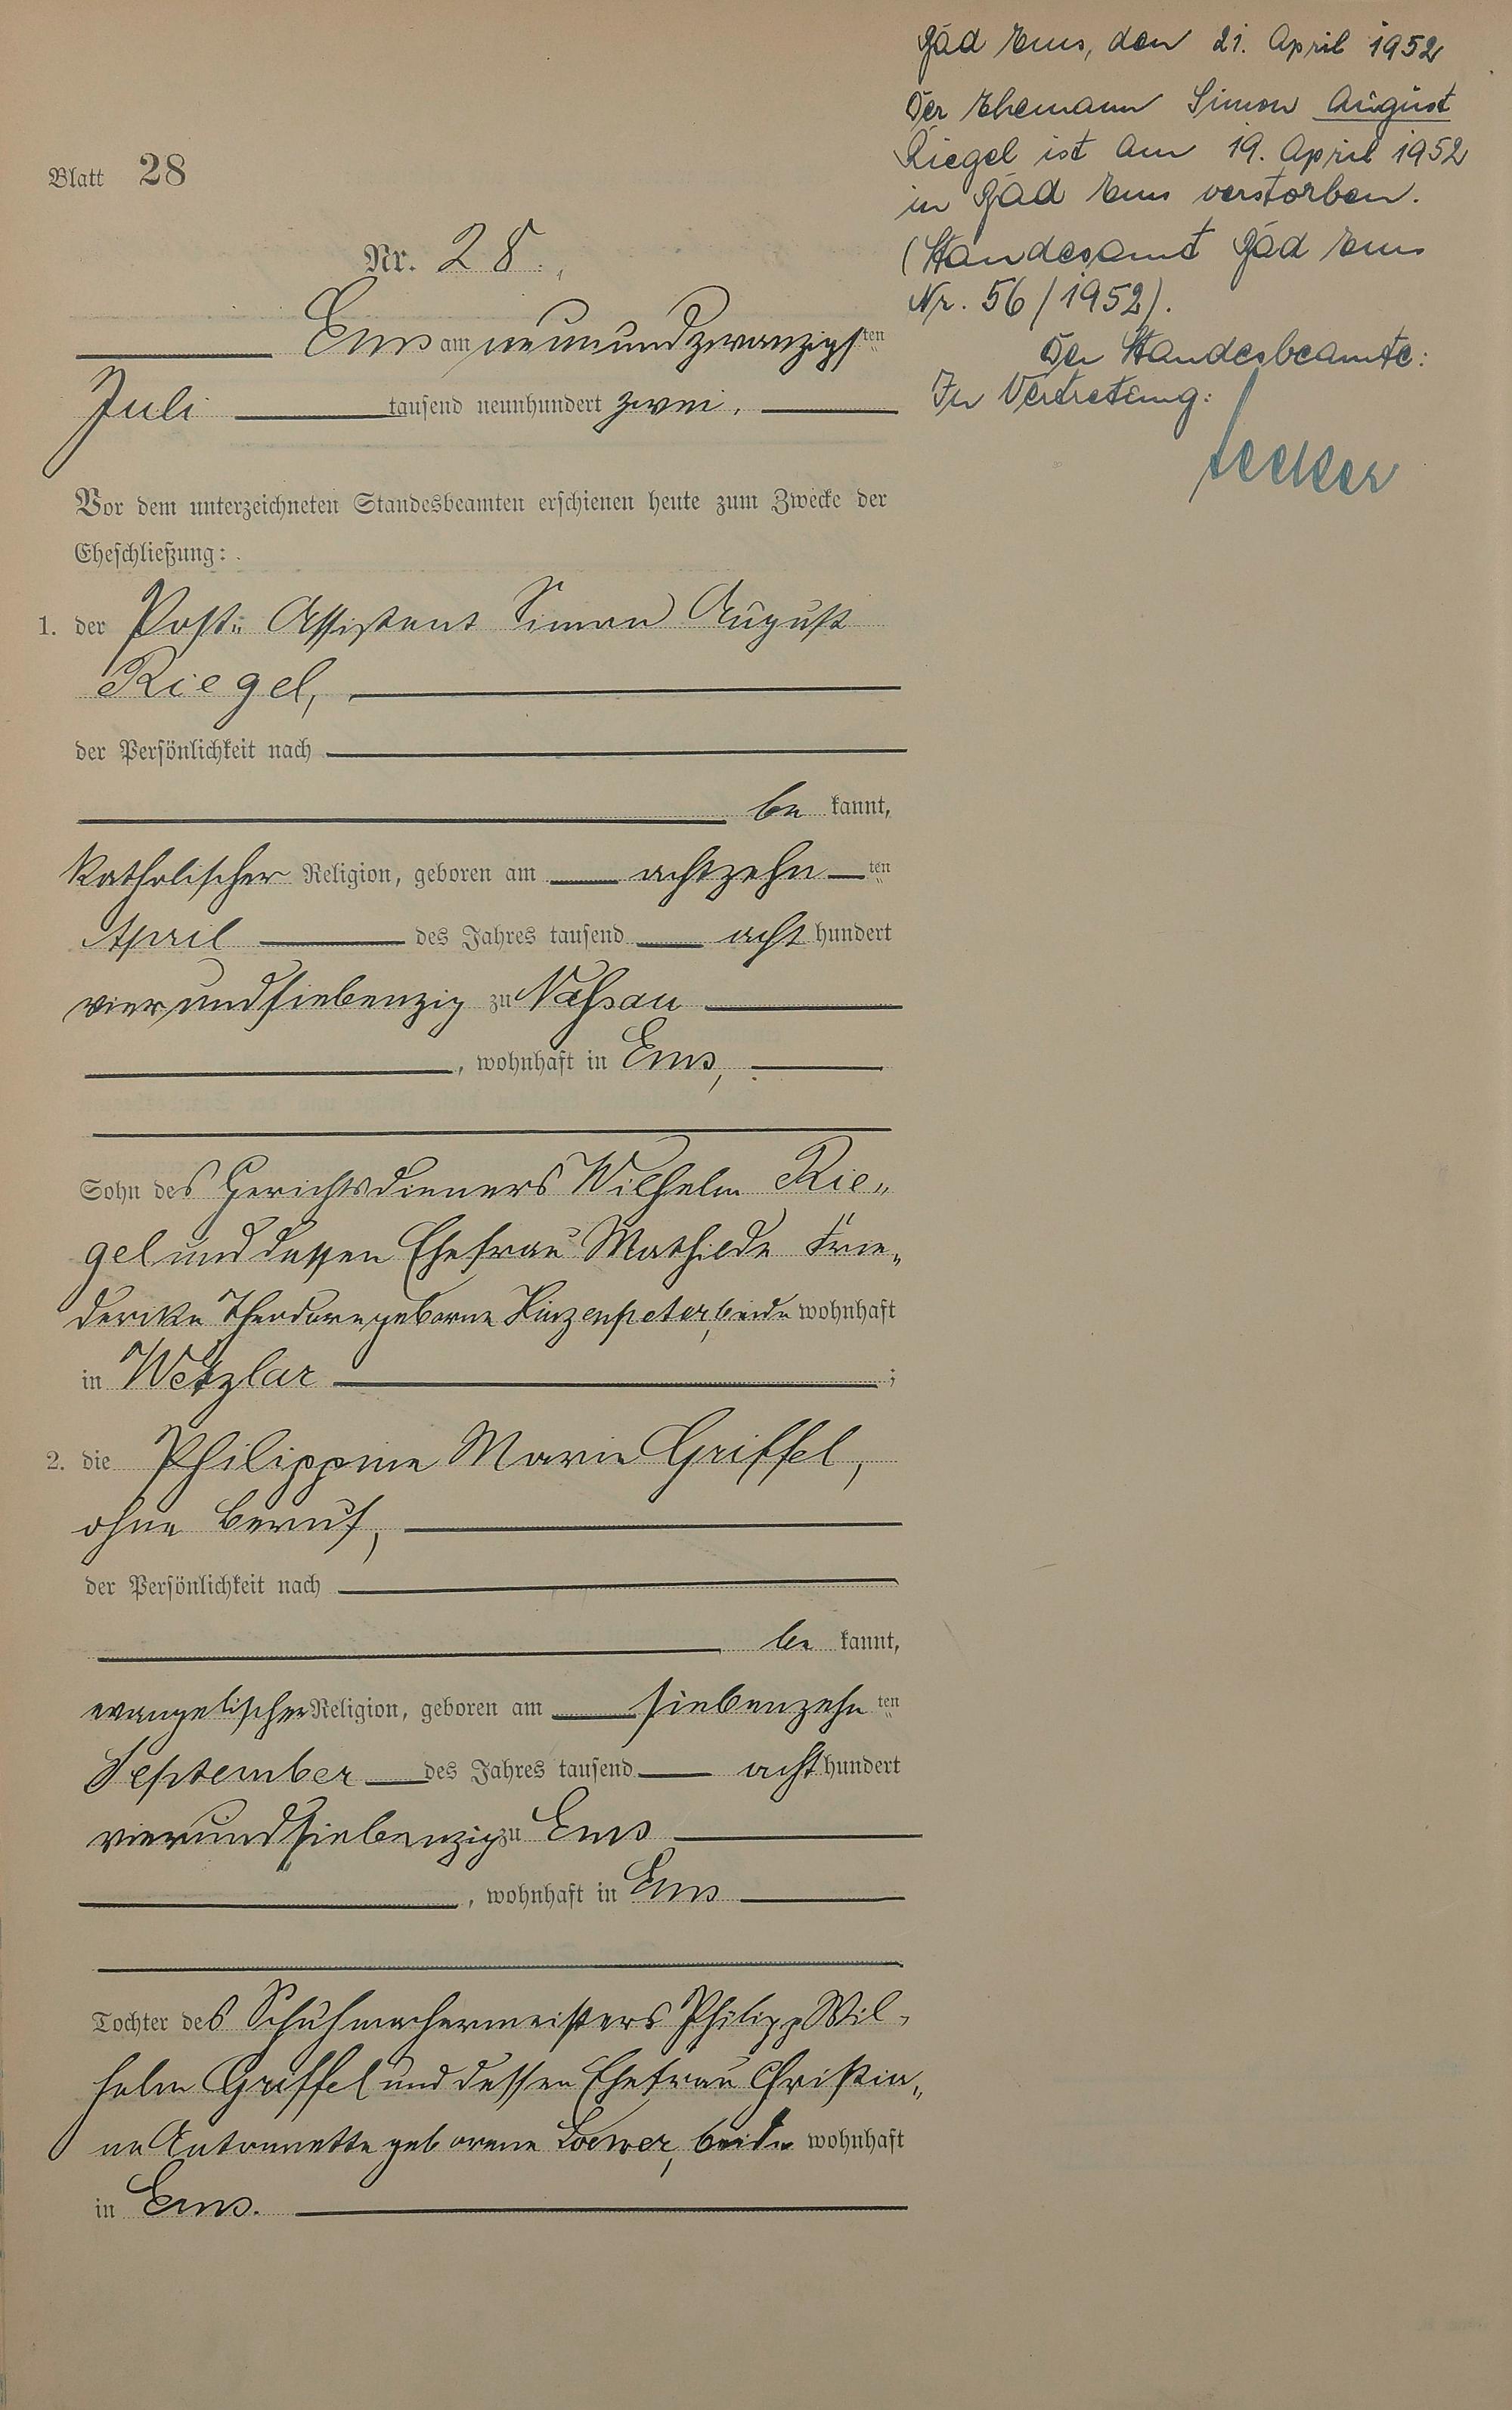 Blatt 28
Nr. 28.
Ems am neunundzwanzigsten
Juli tausend neunhundert zwei.
Vor dem unterzeichneten Standesbeamten erschienen heute zum Zwecke der
Eheschließung:
1. der Post-Assistent Simon August
Riegel,
der Persönlichkeit nach
be kannt,
katholischer Religion, geboren am achtzehn ten
April des Jahres tausend acht hundert
vierundsiebenzig zu Nassau
, wohnhaft in Ems,
Sohn des Gerichtsdieners Wilhelm Rie-
gel und dessen Ehefrau Mathilde Frie-
derike Theodore geborne Hinzenpeter, beide wohnhaft
in Wetzlar ;
2. die Philippine Marie Griffel,
ohne Beruf,
der Persönlichkeit nach
be kannt,
evangelischer Religion, geboren am siebenzehn ten
September des Jahres tausend acht hundert
vierundsiebenzig zu Ems
, wohnhaft in Ems
Tochter des Schuhmachermeisters Philipp Wil-
helm Griffel und dessen Ehefrau Christia-
ne Antonnette geborene Loewer, beide wohnhaft
in Ems.
Bad Ems, den 21. April 1952
Der Ehemann Simon August
Riegel ist am 19. April 1952
in Bad Ems verstorben.
(Standesamt Bad Ems
Nr. 56/1952).
Der Standesbeamte:
In Vertretung: